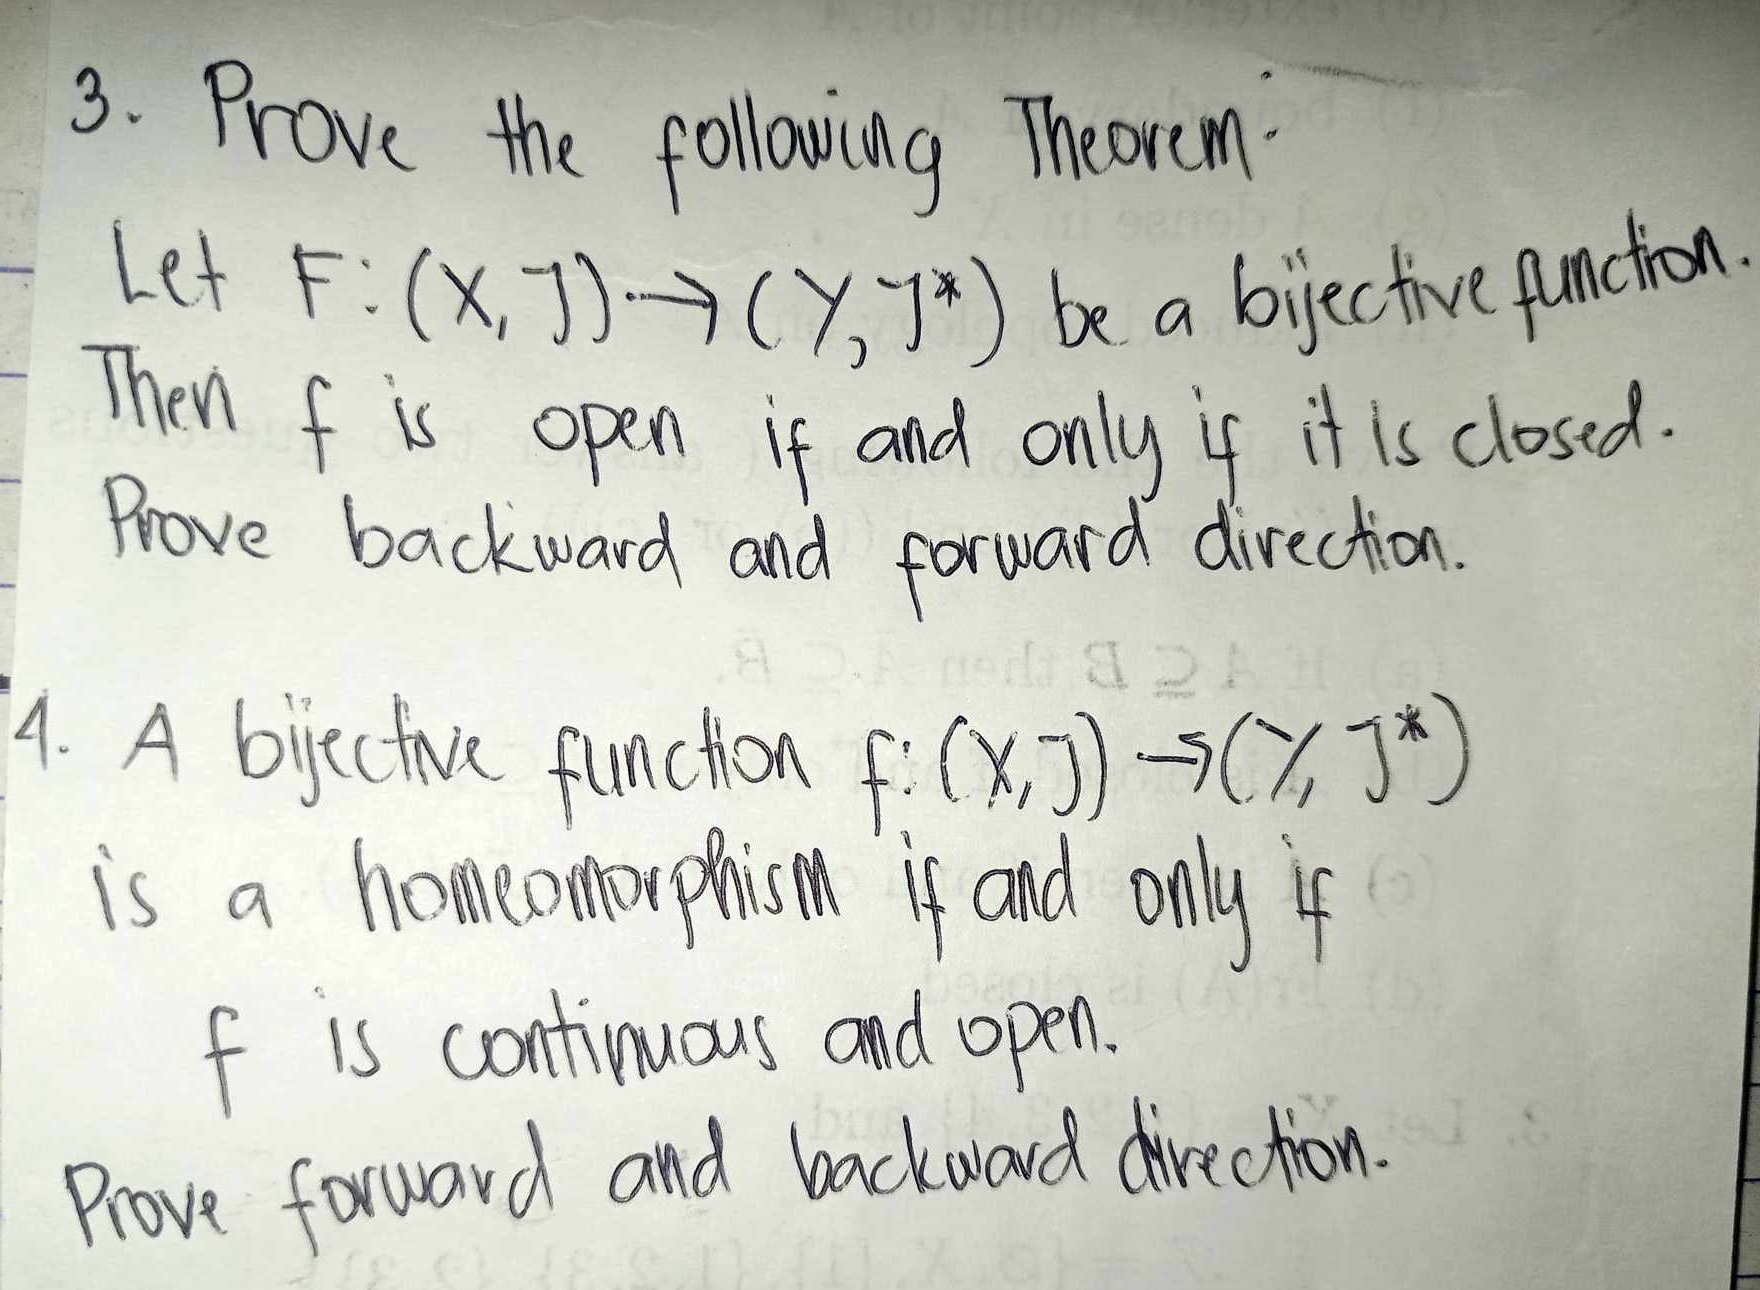 3. Prove the following Theorem:
Let F: (X, J) → (Y, J*) be a bijective function.
Then f is open if and only if it is closed.
Prove backward and forward direction.
4. A bijective function f: (X, J) → (Y, J*)
is a homeomorphism if and only if
f is continuous and open.
Prove forward and backward direction.